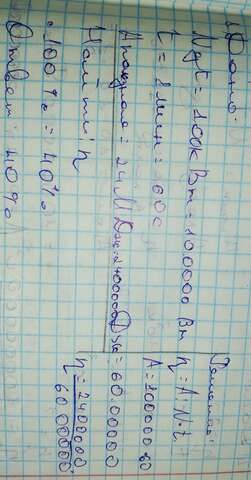 Дано:
Nдв = 100к Вт = 100000 Вт
t = 1 мин = 60 с
Aполезная = 2,4 МДж = 2400000 Дж
Найти: η
Решение:
η = A·N·t =
A = 100000·60
= 6000000
η = 2400000
6000000
· 100% = 40%
Ответ: 40%